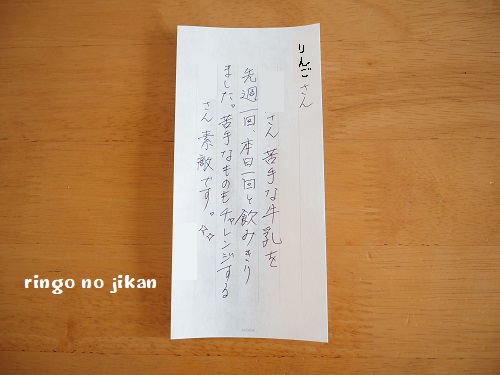 りんごさん
さん 苦手な牛乳を
先週一回、本日一回と飲みきり
ました。苦手なものもチャレンジする
さん 素敵です。☆☆
ringo no jikan